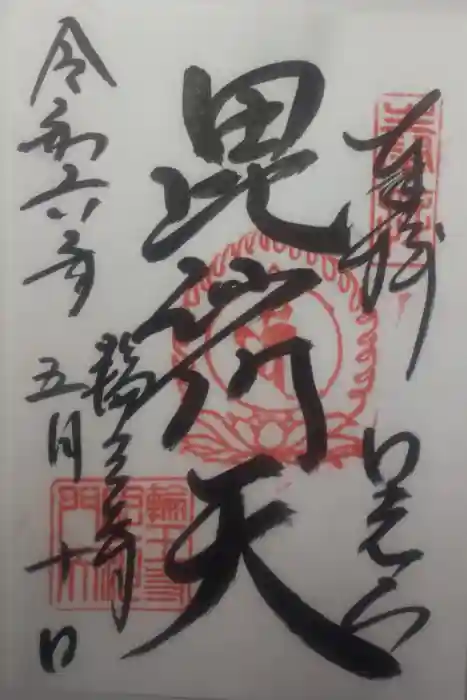 奉拝　日光山
毘沙門天
輪王寺
令和六年五月十日